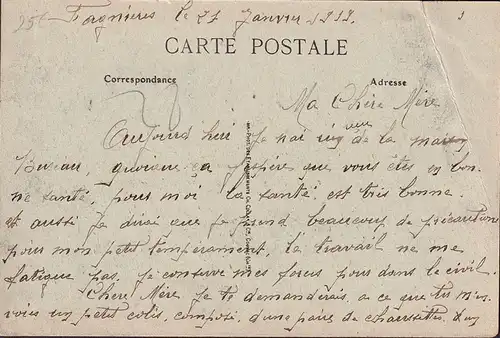 Fargnières le 27 Janvier 1919.
CARTE POSTALE
Correspondance
Adresse
Ma Chère Mère
Aujourd'hui je n'ai rien de la maison
quoique ça j'espère que vous êtes en bon-
ne santé, pour moi la santé est très bonne
et aussi je dirai que je prend beaucoup de précaution
pour mon petit tempérament, le travail ne me
fatigue pas, je conserve mes forces pour dans le civil.
Chère Mère je te demanderais, a ce que tu m'en
voies un petit colis, composé, d'une paire de chaussettes,